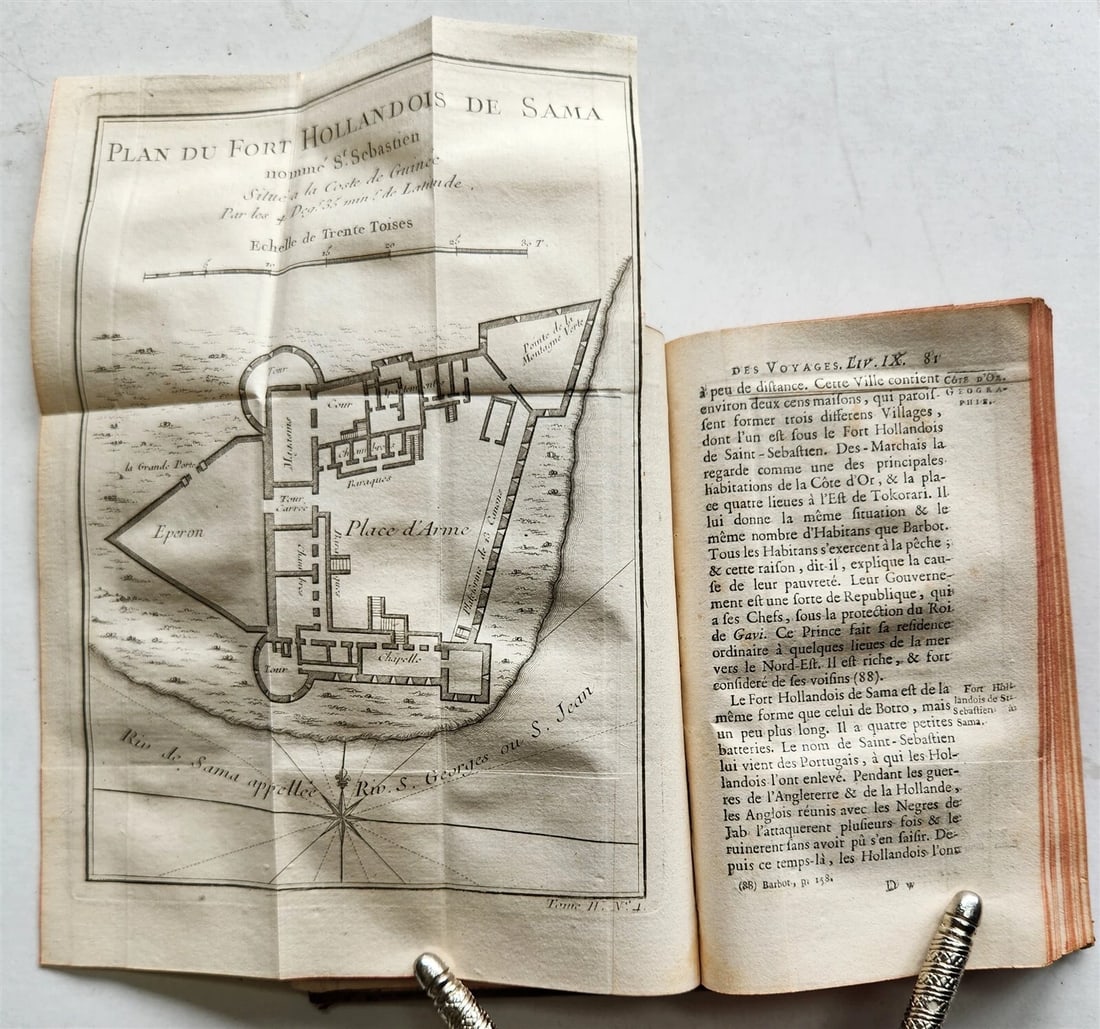 PLAN DU FORT HOLLANDOIS DE SAMA
nommé St. Sebastien
Situé a la Coste de Guinée
Par les 4 Deg.
de Latitude.
Echelle de Trente Toises
5 10 15 20 25 30 T.
Pointe de la
Montagne Verte
Tour
Cour
Logements
Magasins
la Grande Porte
Chambres
Baraques
Tour
Carrée
Eperon
Place d'Arme
Plateforme de 13 Canons
Chambres
Baraques
Tour
Chapelle
Riv. de Sama appellée Riv. S. Georges ou S. Jean
Tome II. No. 4.
DES VOYAGES. LIV. IX. 81
à peu de distance. Cette Ville contient
environ deux cens maisons, qui parois-
sent former trois differens Villages,
dont l'un est sous le Fort Hollandois
de Saint-Sebastien. Des-Marchais la
regarde comme une des principales
habitations de la Côte d'Or, & la pla-
ce quatre lieues à l'Est de Tokorari. Il
lui donne la même situation & le
même nombre d'Habitans que Barbot.
Tous les Habitans s'exercent à la pêche ;
& cette raison, dit-il, explique la cau-
se de leur pauvreté. Leur Gouverne-
ment est une sorte de Republique, qui
a ses Chefs, sous la protection du Roi
de Gavi. Ce Prince fait sa residence
ordinaire à quelques lieues de la mer
vers le Nord-Est. Il est riche, & fort
consideré de ses voisins (88).
Le Fort Hollandois de Sama est de la
même forme que celui de Botro, mais
un peu plus long. Il a quatre petites
batteries. Le nom de Saint-Sebastien
lui vient des Portugais, à qui les Hol-
landois l'ont enlevé. Pendant les guer-
res de l'Angleterre & de la Hollande,
les Anglois réunis avec les Negres de
Jab l'attaquerent plusieurs fois & le
ruinerent sans avoir pû s'en saisir. De-
puis ce temps-là, les Hollandois l'ont
CÔTE D'OR.
GEOGRA-
PHIE.
Fort Hol-
landois de St-
Sebastien à
Sama.
(88) Barbot, p. 158.
D v